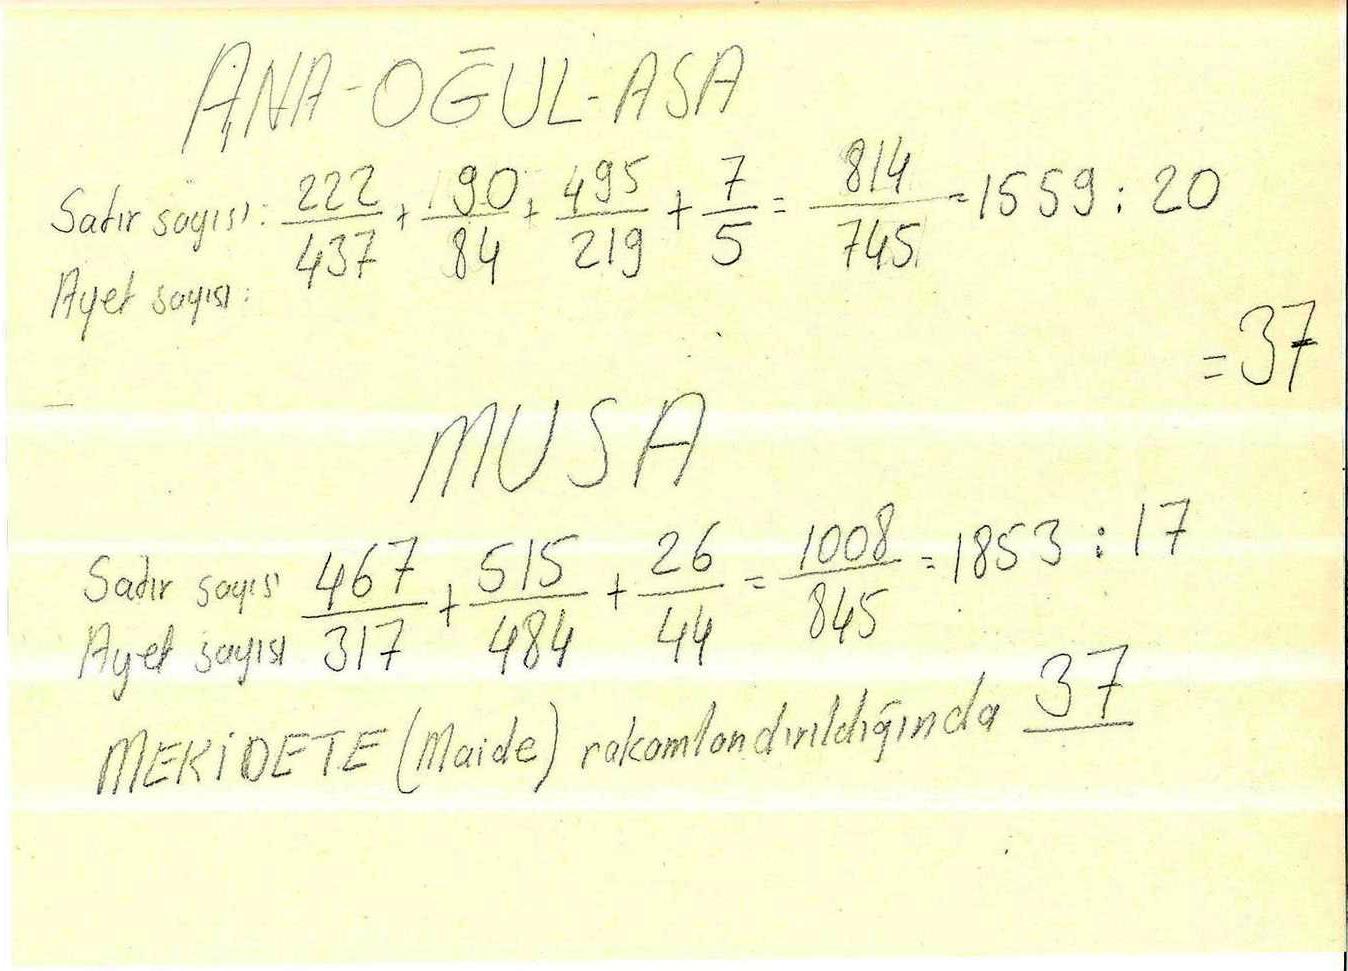 ANA-OĞUL-ASA
Satır sayısı: 222/437 + 190/84 + 495/219 + 7/5 = 814/745 = 1559 : 20
Ayet sayısı:
= 37
MUSA
Satır sayısı 467/317 + 515/484 + 26/44 = 1008/845 = 1853 : 17
Ayet sayısı
37
MEKİDETE (Maide) rakamlandırıldığında